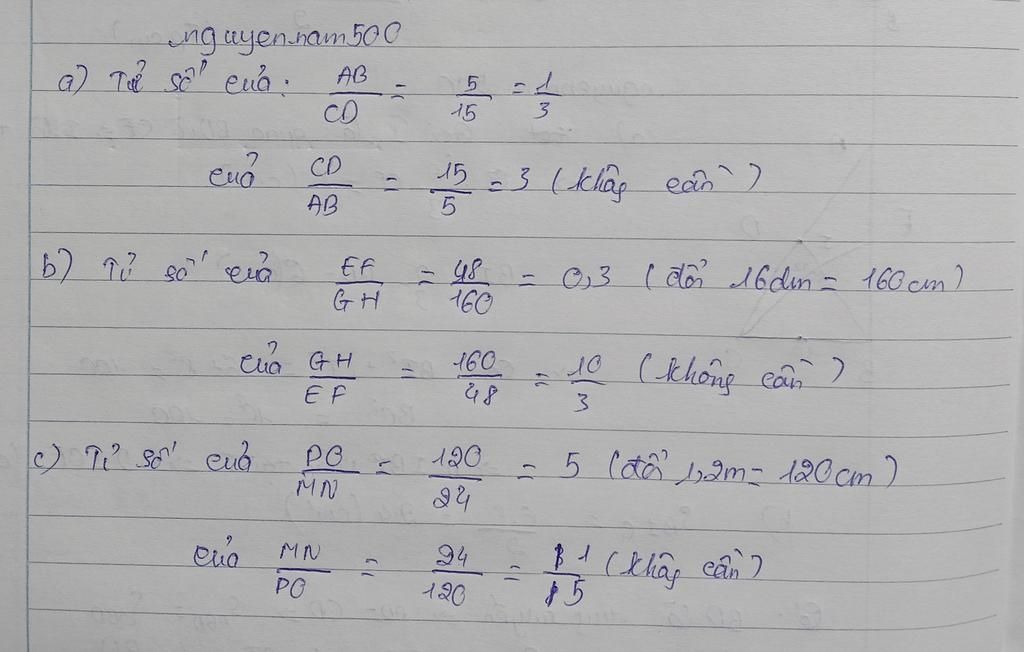 nguyennam500
a) Tỉ số của: AB/CD = 5/15 = 1/3
của CD/AB = 15/5 = 3 (không cần)
b) Tỉ số của EF/GH = 48/160 = 0,3 (đổi 16dm = 160cm)
của GH/EF = 160/48 = 10/3 (không cần)
c) Tỉ số của PQ/MN = 120/24 = 5 (đổi 1,2m = 120cm)
của MN/PQ = 24/120 = 1/5 (không cần)